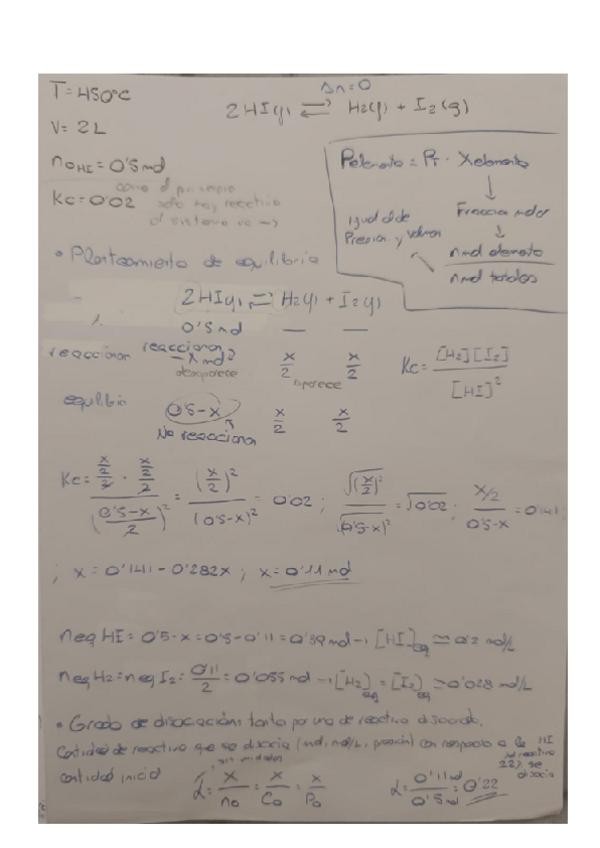 T = 450°C
Δn = 0
2HI(g) ⇌ H2(g) + I2(g)
V = 2L
n0HI = 0'5 mol
Kc = 0'02
como al principio
solo hay reactivo
el sistema va →
Pelemento = PT · Xelemento
Fracción molar
nmol elemento
nmol totales
igual al de
Presión y volumen
• Planteamiento de equilibrio
2HI(g) ⇌ H2(g) + I2(g)
0'5 mol — —
reaccionan reaccionan
- x mol x/2 x/2
desaparece aparece
Kc = [H2][I2] / [HI]²
equilibrio 0'5-x x/2 x/2
No reacciona
Kc = (x/2)/2 · (x/2)/2 / ((0'5-x)/2)² = (x/2)² / (0'5-x)² = 0'02 ; √(x/2)² / √(0'5-x)² = √0'02 ; x/2 / 0'5-x = 0'141
; x = 0'141 - 0'282x ; x = 0'11 mol
neq HI = 0'5-x = 0'5-0'11 = 0'39 mol → [HI]eq ≃ 0'2 mol/L
neq H2 = neq I2 = 0'11/2 = 0'055 mol → [H2]eq = [I2]eq ≃ 0'028 mol/L
• Grado de disociación: tanto por uno de reactivo disociado.
Cantidad de reactivo que se disocia (mol, mol/L, presión) con respecto a la
cantidad inicial
sin unidades
α = x/n0 = x/C0 = x/P0
α = 0'11 mol / 0'5 mol = 0'22
HI
22% se
disocia